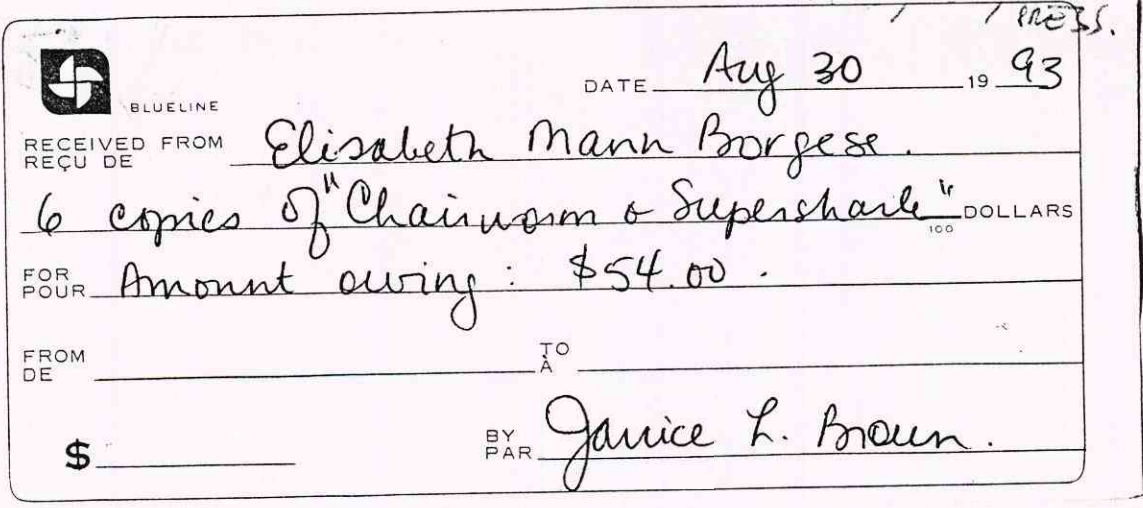 PRESS.
BLUELINE
DATE Aug 30 19 93
RECEIVED FROM
REÇU DE Elisabeth Mann Borgese.
6 copies of "Chairworm & Supershark" 100 DOLLARS
FOR
POUR Amount owing: $54.00.
FROM
DE
TO
À
$
BY
PAR Janice L. Brown.